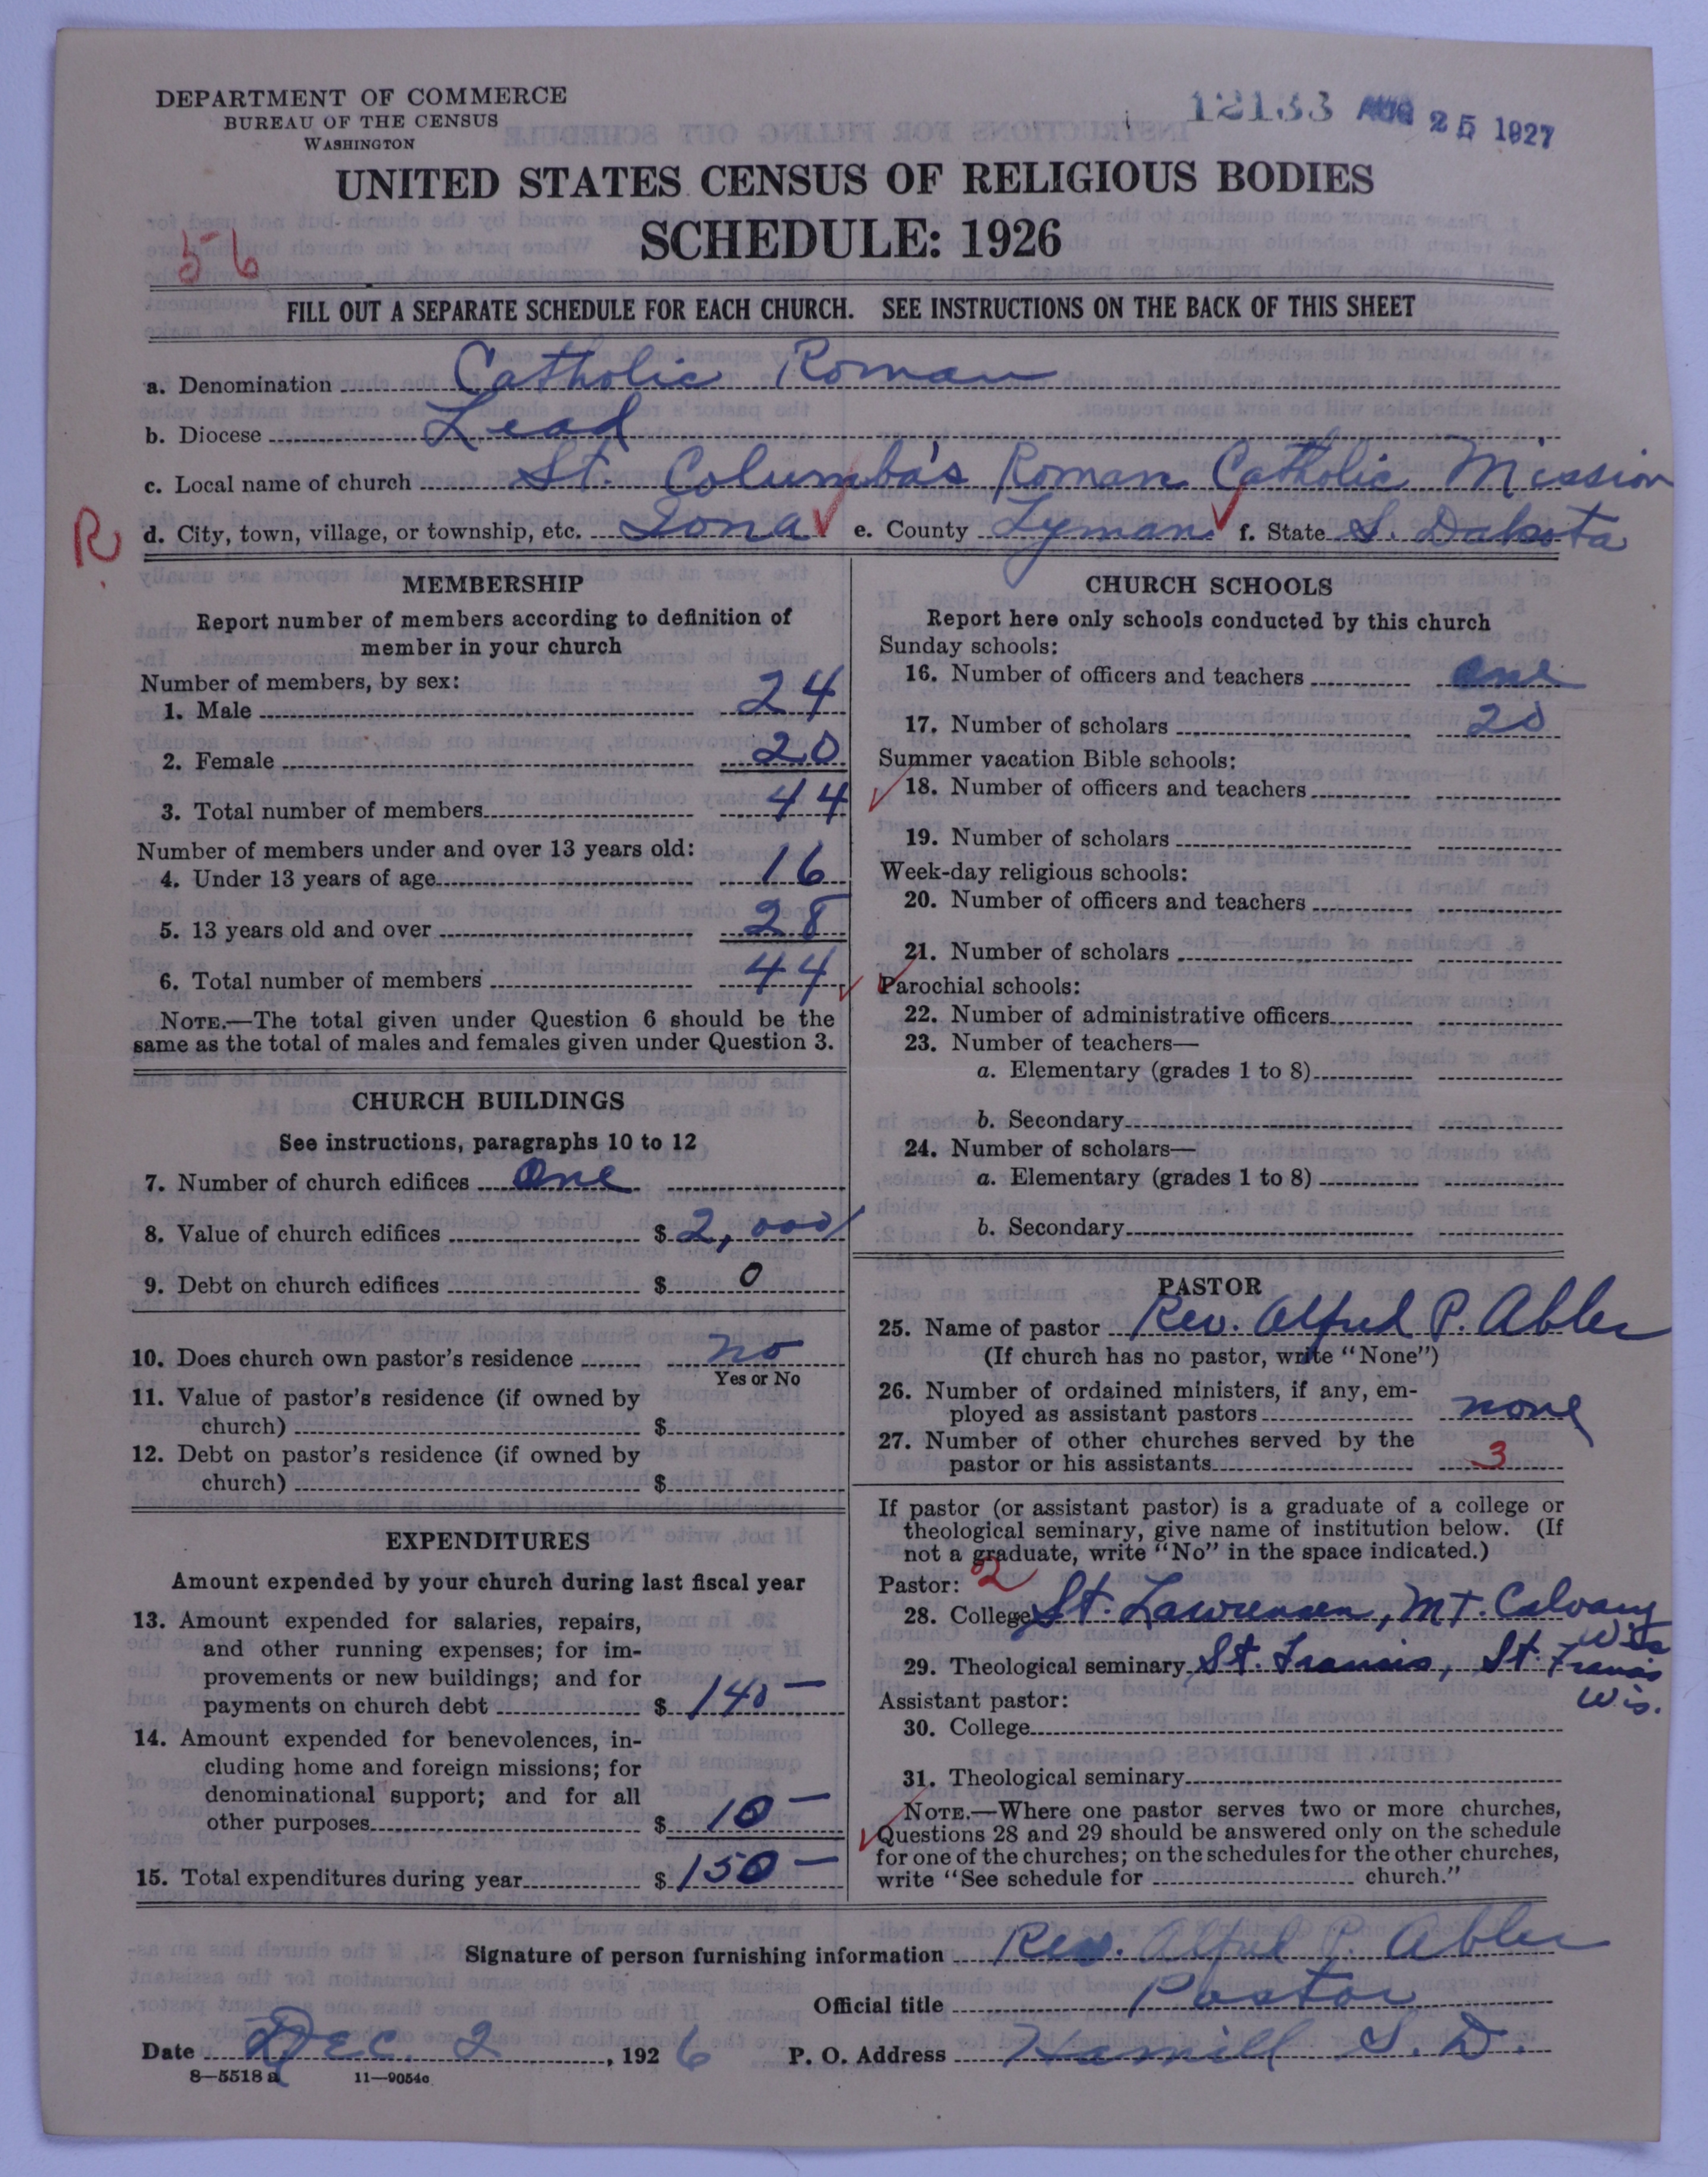 DEPARTMENT OF COMMERCE
BUREAU OF THE CENSUS
WASHINGTON
12133 AUG 25 1927
UNITED STATES CENSUS OF RELIGIOUS BODIES
SCHEDULE: 1926
56
FILL OUT A SEPARATE SCHEDULE FOR EACH CHURCH. SEE INSTRUCTIONS ON THE BACK OF THIS SHEET
a. Denomination Catholic Roman
b. Diocese Lead
c. Local name of church St. Columba's Roman Catholic Mission
R d. City, town, village, or township, etc. Iona e. County Lyman f. State S. Dakota
MEMBERSHIP
Report number of members according to definition of
member in your church
Number of members, by sex:
1. Male 24
2. Female 20
3. Total number of members 44
Number of members under and over 13 years old:
4. Under 13 years of age 16
5. 13 years old and over 28
6. Total number of members 44
NOTE.—The total given under Question 6 should be the
same as the total of males and females given under Question 3.
CHURCH BUILDINGS
See instructions, paragraphs 10 to 12
7. Number of church edifices One
8. Value of church edifices $ 2,000
9. Debt on church edifices $ 0
10. Does church own pastor's residence no
Yes or No
11. Value of pastor's residence (if owned by
church) $
12. Debt on pastor's residence (if owned by
church) $
EXPENDITURES
Amount expended by your church during last fiscal year
13. Amount expended for salaries, repairs,
and other running expenses; for im-
provements or new buildings; and for
payments on church debt $ 140 —
14. Amount expended for benevolences, in-
cluding home and foreign missions; for
denominational support; and for all
other purposes $ 10 —
15. Total expenditures during year $ 150 —
CHURCH SCHOOLS
Report here only schools conducted by this church
Sunday schools:
16. Number of officers and teachers one
17. Number of scholars 20
Summer vacation Bible schools:
18. Number of officers and teachers
19. Number of scholars
Week-day religious schools:
20. Number of officers and teachers
21. Number of scholars
Parochial schools:
22. Number of administrative officers
23. Number of teachers—
a. Elementary (grades 1 to 8)
b. Secondary
24. Number of scholars—
a. Elementary (grades 1 to 8)
b. Secondary
PASTOR
25. Name of pastor Rev. Alfred P. Abler
(If church has no pastor, write "None")
26. Number of ordained ministers, if any, em-
ployed as assistant pastors none
27. Number of other churches served by the
pastor or his assistants 3
If pastor (or assistant pastor) is a graduate of a college or
theological seminary, give name of institution below. (If
not a graduate, write "No" in the space indicated.)
Pastor: 2
28. College St. Lawrence, Mt. Calvary
Wis
29. Theological seminary St. Francis, St. Francis
Wis.
Assistant pastor:
30. College
31. Theological seminary
NOTE.—Where one pastor serves two or more churches,
Questions 28 and 29 should be answered only on the schedule
for one of the churches; on the schedules for the other churches,
write "See schedule for church."
Signature of person furnishing information Rev. Alfred P. Abler
Official title Pastor
Date Dec. 2, 1926 P. O. Address Hamill S. D.
8—5518 a 11—9054c